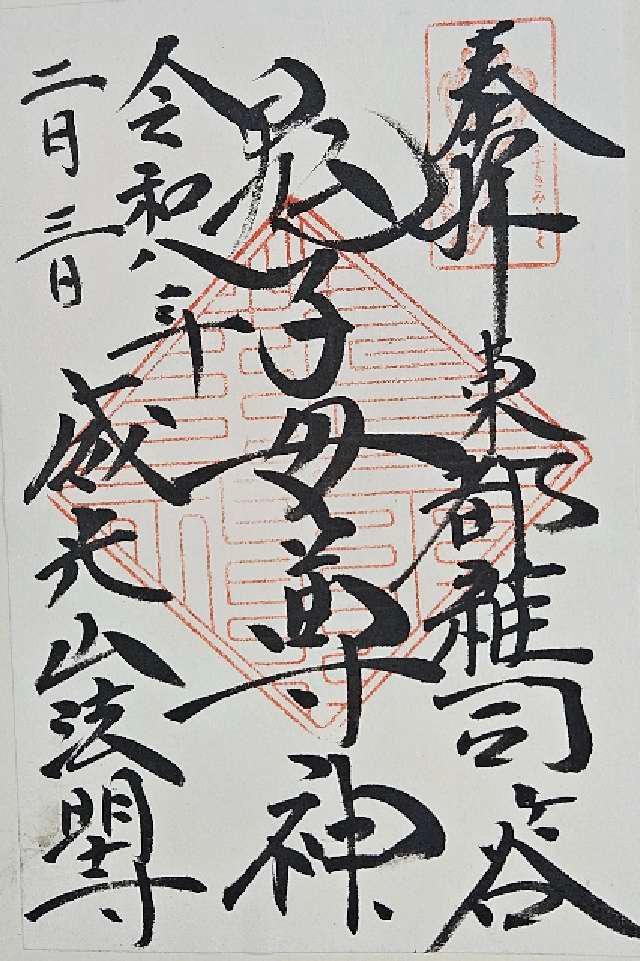 奉拝
東都雑司ヶ谷
鬼子母尊神
令和八年
二月三日
威光山法明寺